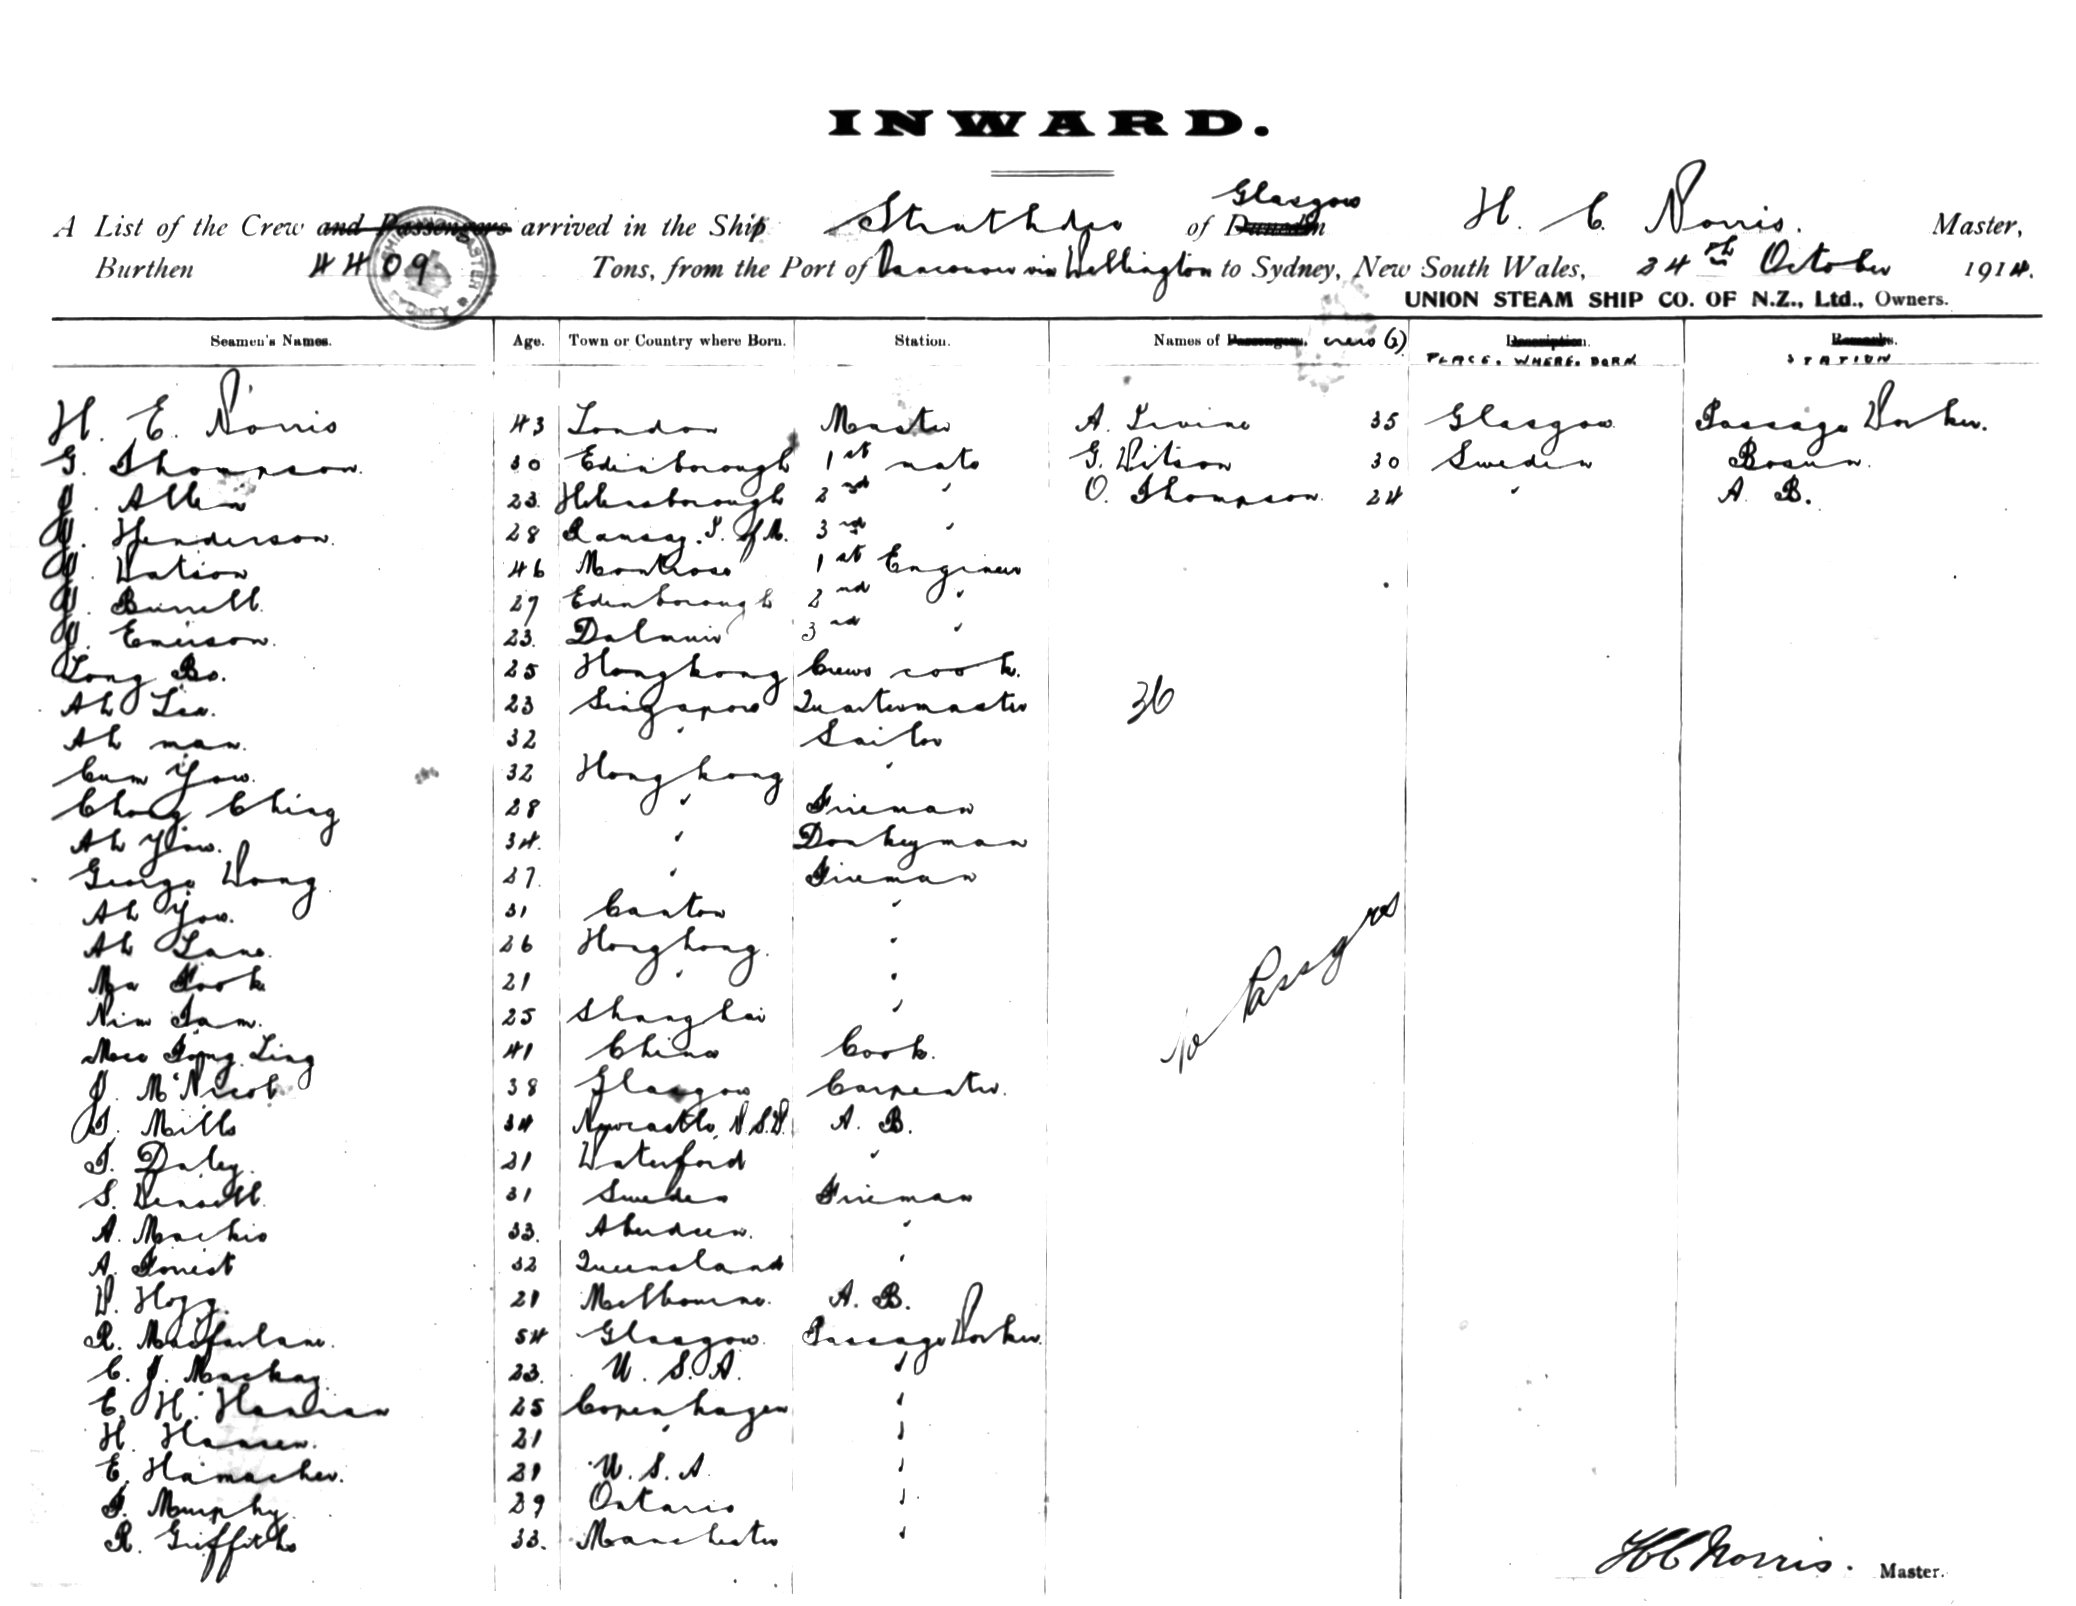 INWARD.
Glasgow
A List of the Crew and Passengers arrived in the Ship Strathdee of Dunedin H. C. Norris. Master,
Burthen 4409 Tons, from the Port of Vancouver via Wellington to Sydney, New South Wales, 24th October 1914.
UNION STEAM SHIP CO. OF N.Z., Ltd., Owners.
Seamen's Names. Age. Town or Country where Born. Station. Names of Passengers. crew (2) Description. Remarks.
PLACE. WHERE. BORN STATION
H. E. Norris 43 London Master A. Irvine 35 Glasgow Passage Worker.
G. Thompson. 30 Edinborough 1st mate G. Wilson 30 Sweden Bosun.
J. Allen 23. Helensborough 2nd " O. Thompson. 24 " A. B.
J. Henderson. 28 Ramsay. I. of M. 3rd "
J. Watson 46 Montrose 1st Engineer
J. Burrell. 27 Edinborough 2nd "
J. Emerson. 23. Dalmuir 3rd "
Long Bo. 25 Hongkong Crews cook.
Ah Lee. 23 Singapore Quartermaster
36
Ah man. 32 " Sailor
Cum Yow. 32 Hongkong "
Chong Ching 28 " Fireman
Ah Yow. 34. " Donkeyman
George Wong 37. " Fireman
Ah Yow. 31 Canton "
Ah Lane. 26 Hongkong. "
Ma Fook 21 " "
Nim Sam. 25 Shanghai "
No Passgrs
Fong Ling 41 China Cook.
J. McNicol 38 Glasgow Carpenter.
Mills 34 Newcastle. N.S.W. A. B.
T. Daley. 21 Waterford "
S. 31 Sweden Fireman
A. Mackie 33. Aberdeen. "
A. Forrest 32 Queensland "
W. Hogg. 21 Melbourne. A. B.
R. Macfarlane. 54 Glasgow. Passage Worker.
C. J. Mackay. 23. U. S. A. "
E. H. Hansen 25 Copenhagen "
H. Hansen. 21 " "
E. Hamacher. 21 U. S. A. "
T. Murphy. 29 Ontario "
R. Griffiths 33. Manchester "
H C Norris. Master.